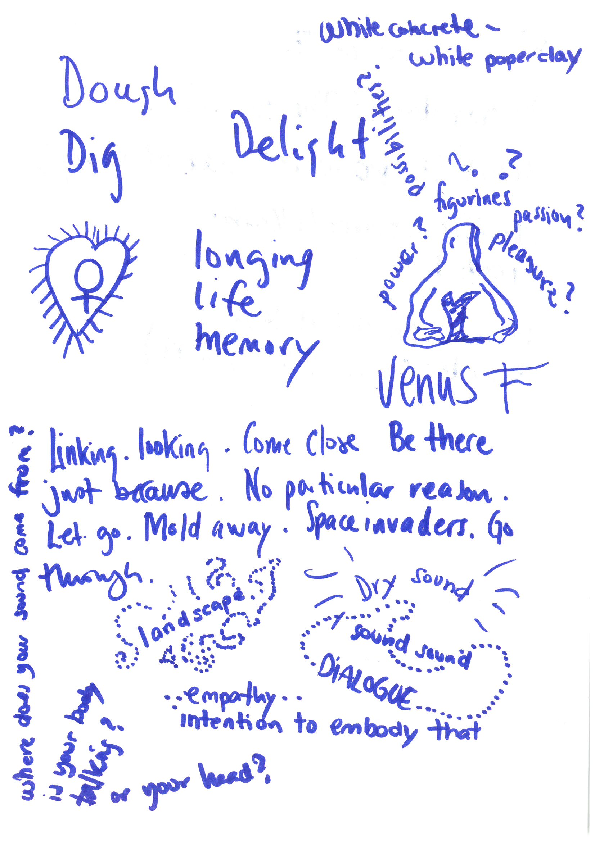 White concrete ~
white paperclay
Dough
Dig
Delight
possibilities?
~. . ?
figurines
passion?
power?
pleasure?
longing
life
memory
Venus F
Linking. looking. Come Close Be there
just because. No particular reason.
Let go. Mold away. Space invaders. Go
through.
landscape
Dry sound
sound sound
DIALOGUE
..empathy..
intention to embody that
where does your sound come from?
is your body
talking?
or your head?